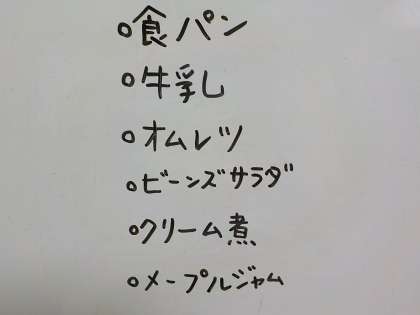 ○食パン
○牛乳
○オムレツ
○ビーンズサラダ
○クリーム煮
○メープルジャム